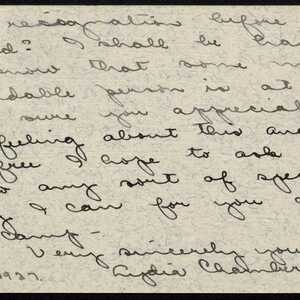 resignation before
? I shall be
now that some
dable person is at
sure you apprecia
feeling about this and
free I hope to ask
o any sort of spe
I can for you
Camp -
Very sincerely you
1937. Lydia Chamber